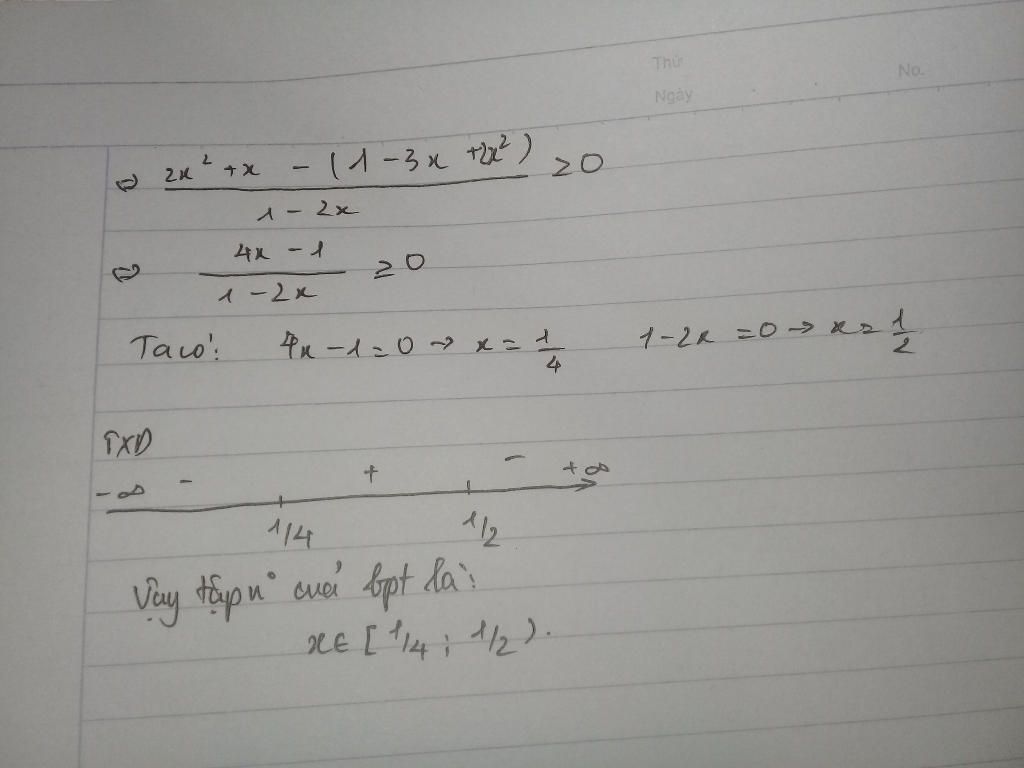 Thứ
No.
Ngày
⇔ (2x² + x - (1 - 3x + 2x²)) / (1 - 2x) ≥ 0
⇔ (4x - 1) / (1 - 2x) ≥ 0
Ta có: 4x - 1 = 0 → x = 1/4 1 - 2x = 0 → x = 1/2
TXD
-∞ - + - +∞
1/4 1/2
Vậy tập n° của bpt là:
x ∈ [1/4 ; 1/2).